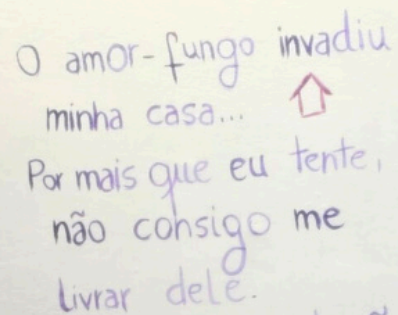 O amor-fungo invadiu
minha casa...
Por mais que eu tente,
não consigo me
livrar dele.